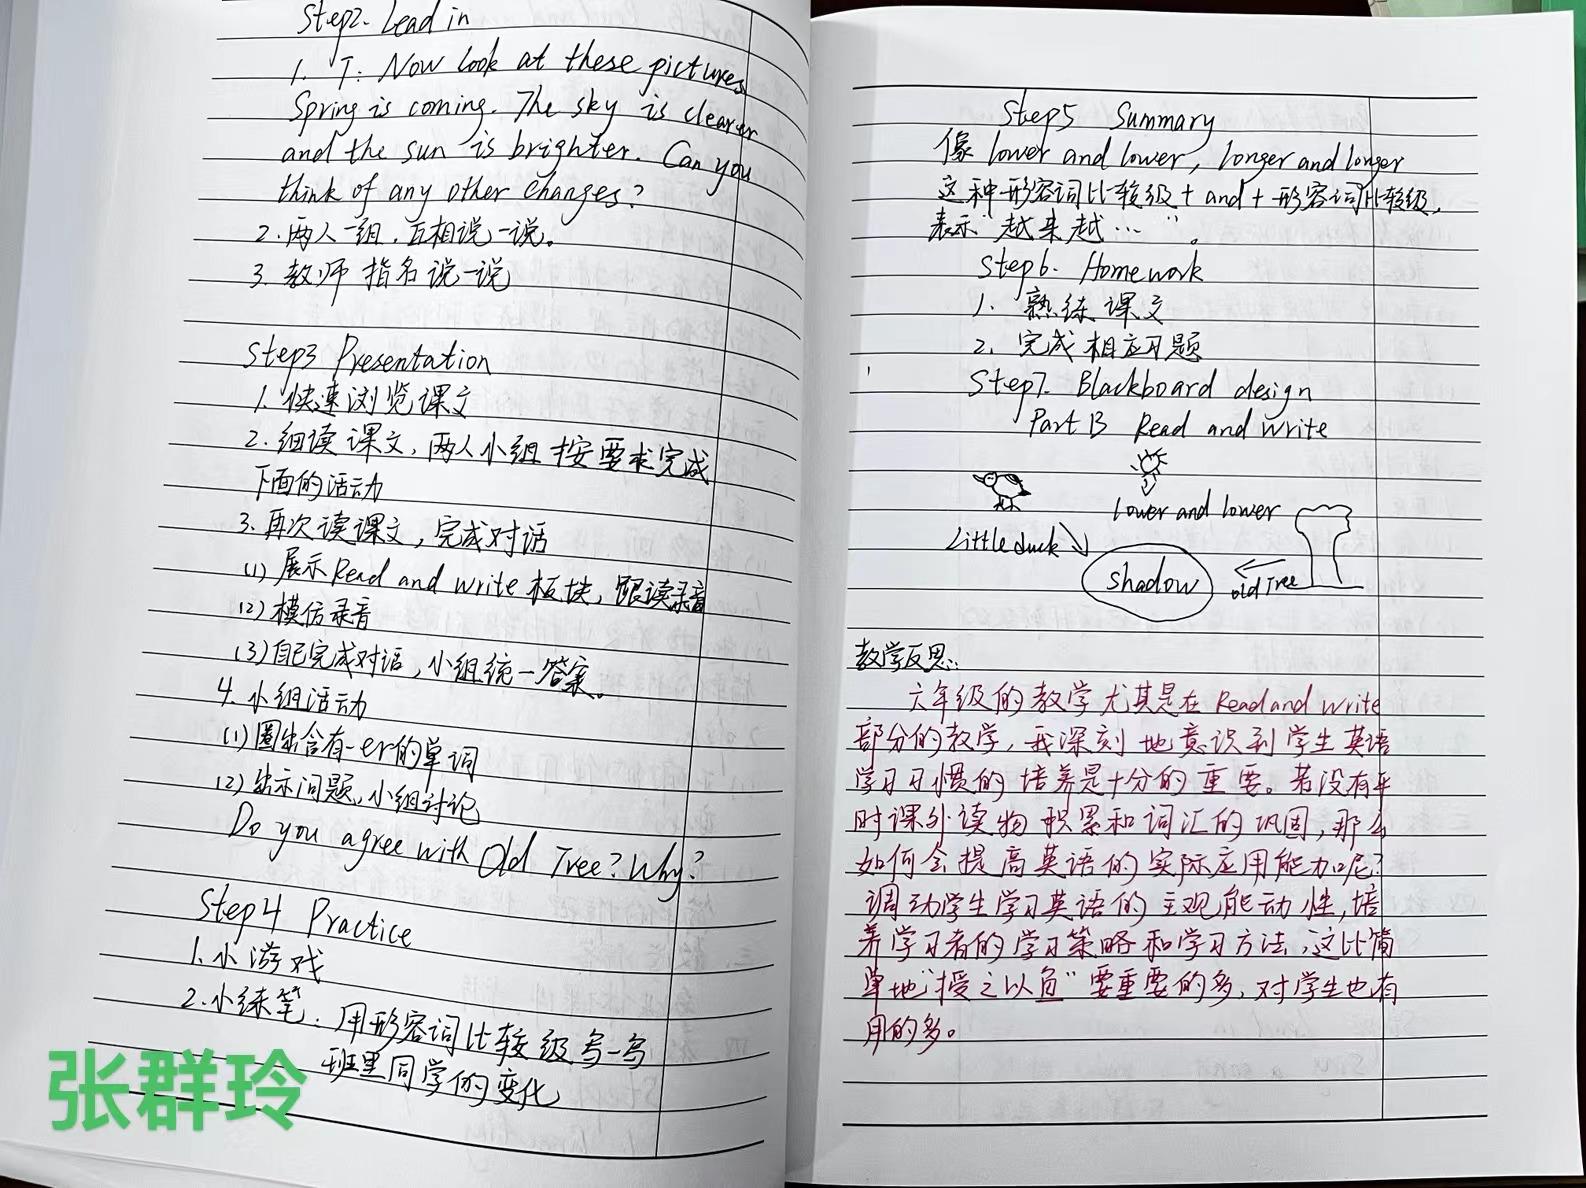 Step2. Lead in
1. T: Now look at these pictures
Spring is coming. The sky is clearer
and the sun is brighter. Can you
think of any other changes?
2. 两人一组，互相说一说。
3. 教师指名说一说
Step3 Presentation
1. 快速浏览课文
2. 细读课文，两人小组按要求完成
下面的活动
3. 再次读课文，完成对话
(1) 展示Read and write板块，跟读录音
(2) 模仿录音
(3) 自己完成对话，小组统一答案。
4. 小组活动
(1) 圈出含有-er的单词
(2) 出示问题，小组讨论
Do you agree with Old Tree? Why?
Step4 Practice
1. 小游戏
2. 小练笔：用形容词比较级写一写
班里同学们的变化
张群玲
Step5 Summary
像lower and lower, longer and longer
这种形容词比较级+and+形容词比较级，
表示“越来越…”。
Step6. Homework
1. 熟练课文
2. 完成相应习题
Step7. Blackboard design
Part B Read and write
lower and lower
Little duck
shadow
old Tree
教学反思：
六年级的教学尤其是在Read and write
部分的教学，我深刻地意识到学生英语
学习习惯的培养是十分的重要。若没有平
时课外读物积累和词汇的巩固，那么
如何会提高英语的实际应用能力呢？
调动学生学习英语的主观能动性，培
养学习者的学习策略和学习方法，这比简
单地“授之以鱼”要重要的多，对学生也有
用的多。